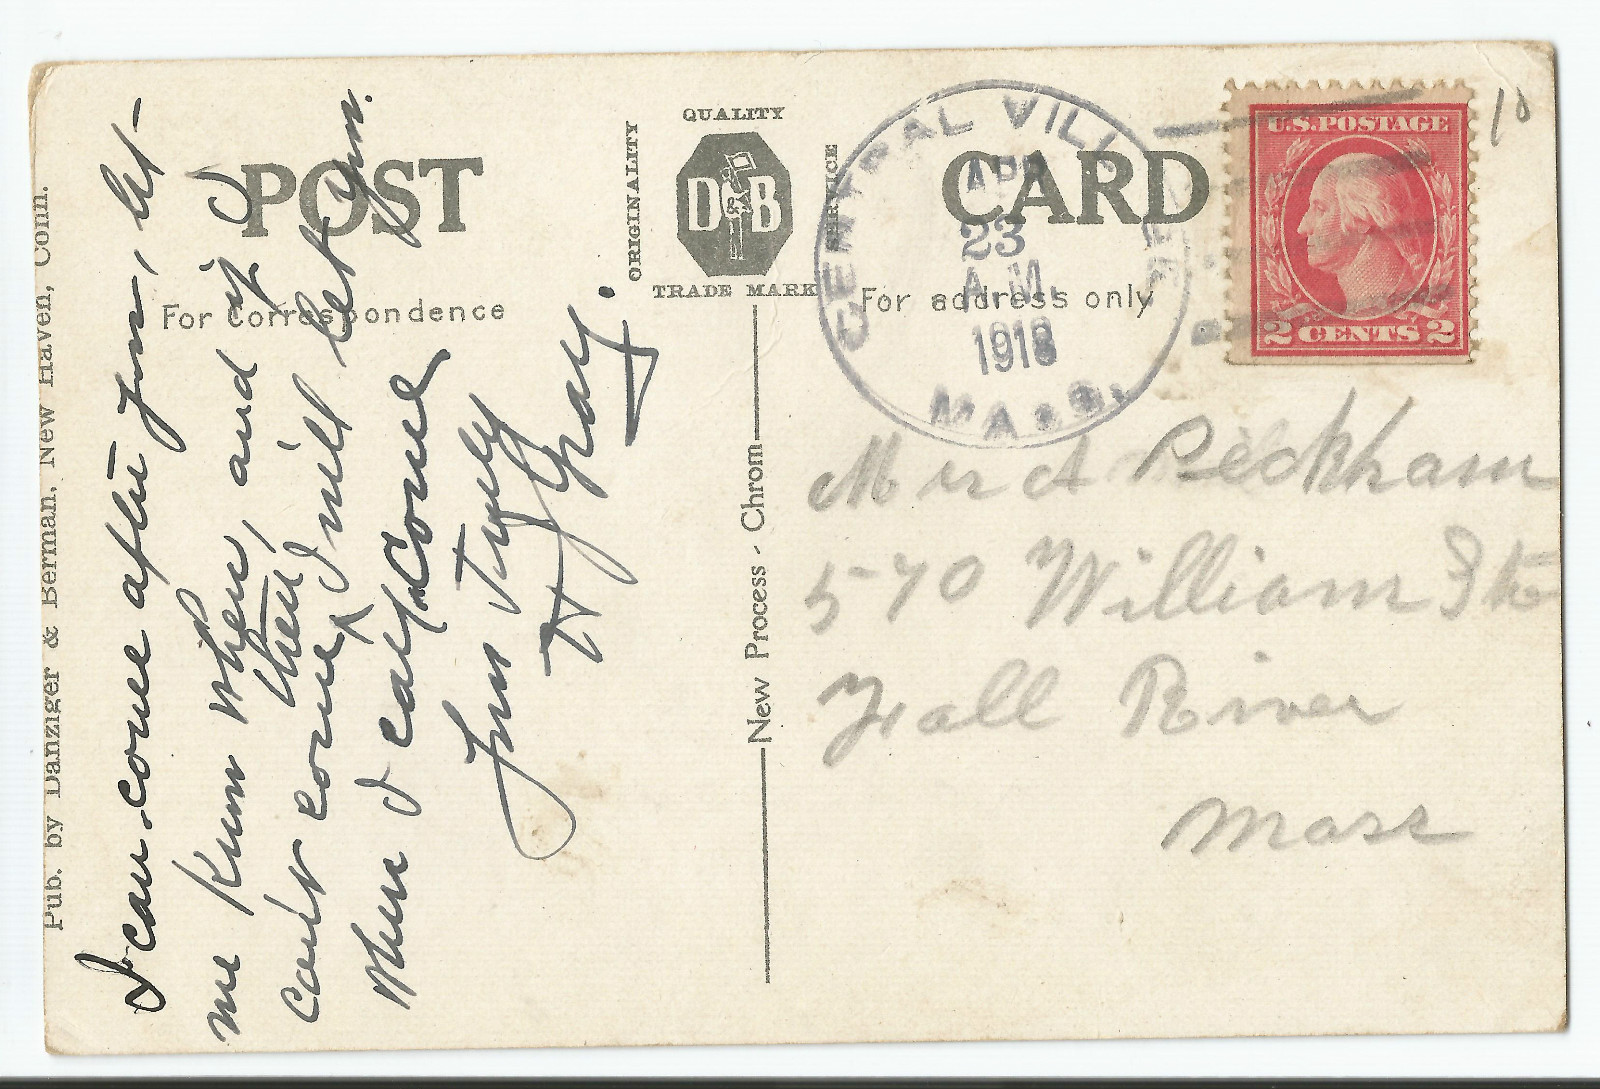 Pub. by Danziger & Berman, New Haven, Conn.
POST CARD
For correspondence
For address only
QUALITY
ORIGINALITY
SERVICE
TRADE MARK
D & B
New Process - Chrom
CENTRAL VILLAGE
APR
23
A.M.
1918
MASS.
U.S. POSTAGE
2 CENTS 2
10
I can come after you, let
me know when, and if I
can't come then, I will let you.
when I can come
Yours Truly
H Gray.
Mrs A Peckham
570 William St
Fall River
Mass